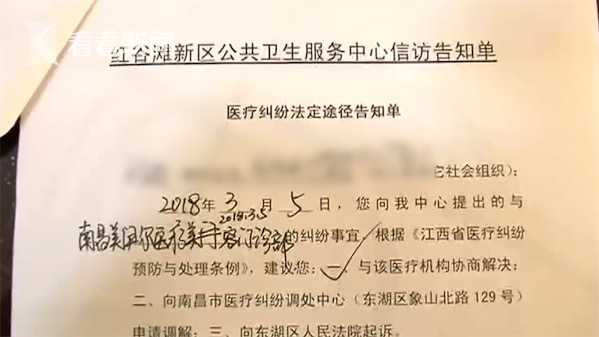 看看新闻
红谷滩新区公共卫生服务中心信访告知单
医疗纠纷法定途径告知单
社会组织):
2018年3月5日,您向我中心提出的与
2018.3.5
南昌美贝尔医疗美容门诊部的纠纷事宜,根据《江西省医疗纠纷
预防与处理条例》,建议您:一、与该医疗机构协商解决;
二、向南昌市医疗纠纷调处中心(东湖区象山北路129号)
申请调解;三、向东湖区人民法院起诉。